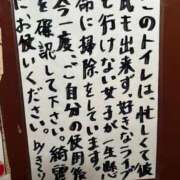 このトイレは、忙しくて彼
氏も出来ず、好きなライブ
にも行けない女子が一生懸
命に掃除をしています。
今一度、ご自分の使用後
を確認して下さい。綺麗
にお使いください。